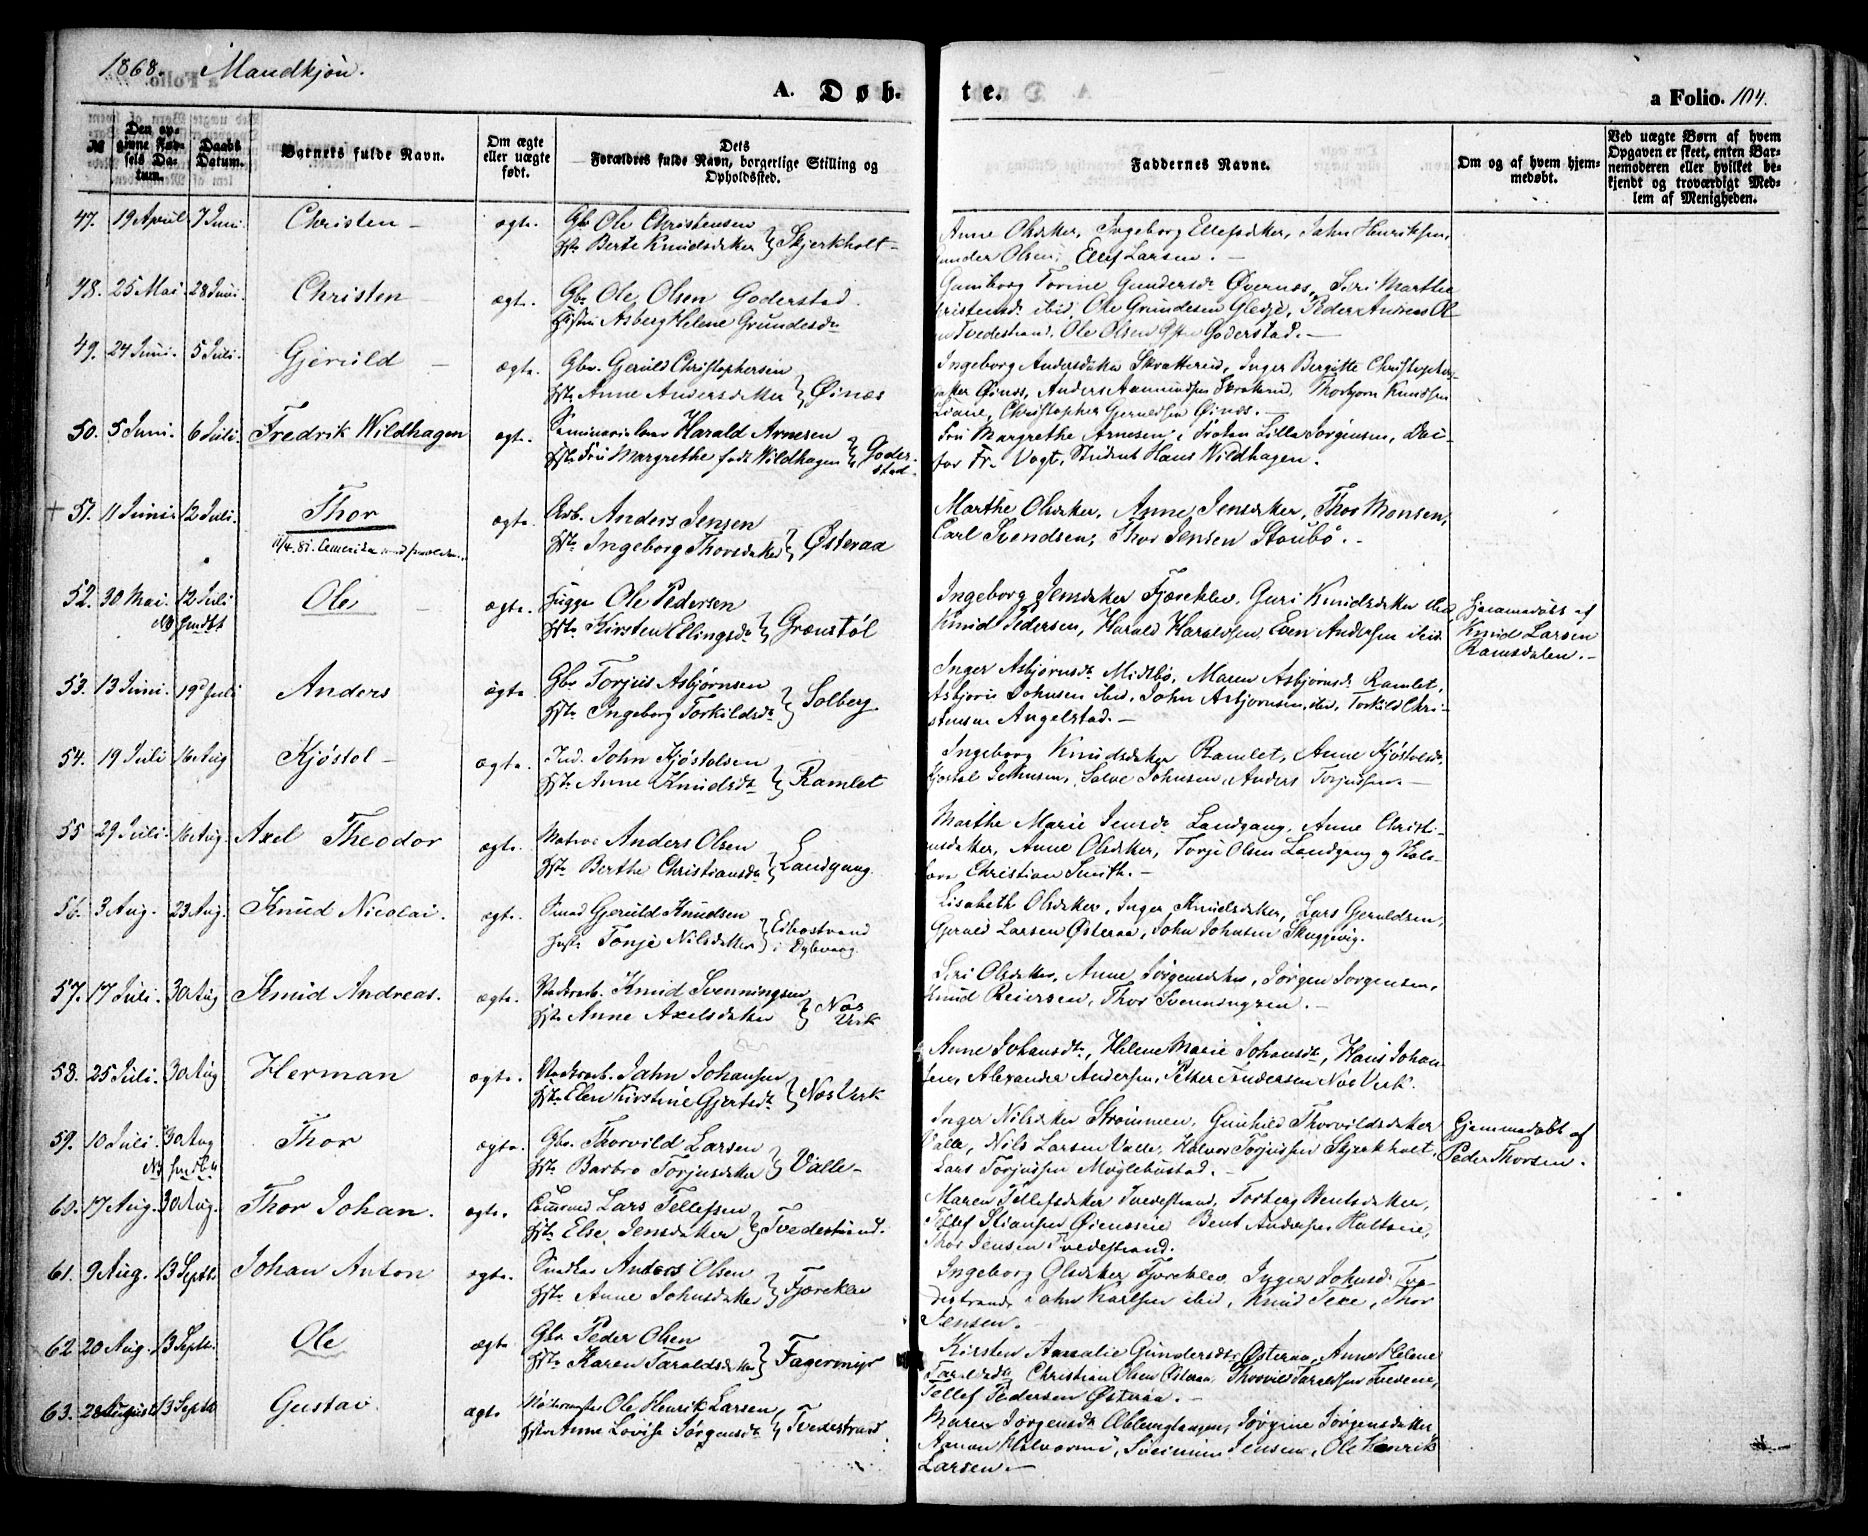 1868. Mandkjøn.
A. Døbte.
a Folio. 104.
№
Den opgivne Fødsels Datum.
Daabs Datum.
Barnets fulde Navn.
Om ægte eller uægte født.
Dets Forældres fulde Navn, borgerlige Stilling og Opholdssted.
Faddernes Navne.
Om og af hvem hjemmedøbt.
Ved uægte Børn af hvem Opgaven er skeet, enten Barnemoderen eller hvilket bekjendt og troværdigt Medlem af Menigheden.
47. 19 April 7 Juni Christen – ægte. Gbr Ole Christensen
Hst. Berte Knudsdatter } Skjerkholt –
Anne Olsdatter, Ingeborg Ellefsdatter, John Henriksen,
Gunder Olsen, Ellef Larsen. –
48. 25 Mai. 28 Juni. Christen ægte. Gbr Ole Olsen Goderstad.
Hustru Asberg Helene Grundesdtr
Gunborg Torine Gundersdr Øvernæs, Siri Marthe
Christensd. ibid, Ole Grundesen Gledje, Peder Andreas Ol-
Tvedestrand, Ole Olsen Goderstad. –
49. 24 Juni. 5 Juli. Gjeruld – ægte. Gbr. Geruld Christophersen
Hst. Anne Andersdatter } Øinæs
Ingeborg Andersdatter Skratterud, Inger Bergitte Christophers-
datter Øinæs, Anders Aanundsen Thorbjørn Knudsen
Liane, Christopher Gjeruldsen Øinæs. –
50. 5 Juni. 6 Juli. Fredrik Wildhagen ægte. Seminarielærer Harald Arnesen
Hst. Fru Margrethe født Wildhagen } Goderstad.
Fru Margrethe Arnesen, Frøken Lilla Jørgensen, Doc-
tor Fr. Vogt, Student Hans Wildhagen.
+ 51. 11 Juni. 12 Juli. Thor ægte. Arb. Anders Jensen
11/4. 81. Amerika
Hst. Ingeborg Thorsdatter } Østeraa
Marthe Olsdatter, Anne Jensdatter, Thor Monsen,
Carl Svendsen, Thor Jensen Staubø. –
52. 30 Mai. 12 Juli Ole – ægte. Ole Pedersen
NB
Hst. Kirsten Ellingsdr } Grønstøl
Ingeborg Jensdatter Fjæreklev, Guri Knudsdatter ibid,
Knud Pedersen, Harald Haraldsen, Even Andersen ibid
Hjemmedøbt af
Knud Larsen
Ramsdalen. –
53. 13 Juni. 19 Juli Anders ægte. Gbr Torjus Asbjørnsen
Hst. Ingeborg Torkildsdr } Solberg
Inger Asbjørnsdr Midtbø, Maren Asbjørnsdr Ramlet,
Asbjørn Johnsen ibid, John Asbjørnsen, ibid, Torkild Chri-
stensen Angelstad. –
54. 19 Juli 16 Aug Kjøstol – ægte. Ind. John Kjøstolsen
Hst. Anne Knudsdtr } Ramlet
Ingeborg Knudsdatter Ramlet, Anne Kjøstolsdr,
Kjøstol Johnsen, Salve Johnsen, Anders Torjussen. –
55 29 Juli. 16 Aug. Axel Theodor ægte. Matros Anders Olsen
Hst. Berthe Christiansdr } Landgang.
Marthe Marie Jensdr Landgang, Anne Christi-
ansdatter, Anne Olsdatter, Torje Olsen Landgang og
Christian Smith. –
56. 3 Aug. 23 Aug. Knud Nicolai. ægte. Smed Gjeruld Knudsen
Hust. Tonje Nilsdatter } Edbostrand i Dybvaag
Lisabeth Olsdatter, Inger Knudsdatter, Lars Geruldsen,
Gjeruld Larsen Østeraa, John Johnsen Skuggevig.
57. 17 Juli. 30 Aug Knud Andreas. ægte. Værksarb. Knud Svenningsen
Hst. Anne Axelsdatter } Næs Verk
Siri Olsdatter, Anne Jørgensdatter, Jørgen Jørgensen,
Knud Reiersen, Thor Svenningsen. –
58. 25 Juli. 30 Aug Herman ægte. Værksarb. John Johansen
Hst. Elen Kirstine Gjertsdr } Næs Verk
Anne Johansdtr, Helene Marie Johansdtr, Hans Johan-
sen, Alexander Andersen, Petter Andersen Næs Verk.
59. 10 Juli. 30 Aug Thor ægte. Gbr. Thorvild Larsen
NB
Hst. Barbro Torjusdatter } Valle –
Inger Nilsdatter Strømmen, Gunhild Thorvildsdatter
Valle, Nils Larsen Valle, Halvor Torjussen Skjerkholt,
Lars Torjussen Møglebustad. –
Hjemmedøbt af
Peder Thorsen.
60. 17 Aug. 30 Aug. Thor Johan. ægte. Lars Tellefsen
Hst. Else Jensdatter } Tvedestrand.
Maren Tellefsdatter Tvedestrand, Torberg Bentsdatter,
Tellef Stiansen Bent Andersen
Thor Jensen Tvedestrand.
61. 9 Aug. 13 Septb. Johan Anton ægte. Anders Olsen
Hst. Anne Johnsdatter } Fjæreklev
Ingeborg Olsdatter Fjæreklev, Inger Johnsd. Tve-
destrand, John Karlsen ibid, Knud Thor
Jensen. –
62. 20 Aug. 13 Septb. Ole ægte. Gbr. Peder Olsen
Hst. Karen Taraldsdatter } Fagermyr
Kirsten Amalie Gundersdtr Østeraa, Anne Helene
Taraldsdtr Christian Olsen Østeraa, Thorvild Taraldsen Tvedene,
Tellef Pedersen Østeraa. –
63. 28 August 13 Septb Gustav ægte. Ole Henrik Larsen
Hst. Anne Lovise Jørgensdr } Tvedestrand.
Maren Jørgensdr Jørgine Jørgensdatter
Aanon Jensen, Ole Henrik
Larsen. –